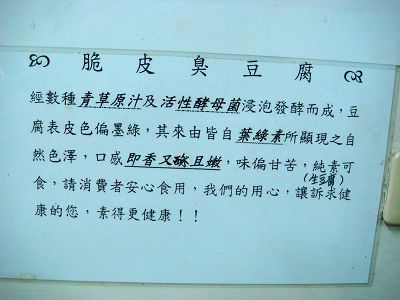 脆皮臭豆腐
經數種青草原汁及活性酵母菌浸泡發酵而成，豆
腐表皮色偏墨綠，其來由皆自葉綠素所顯現之自
然色澤，口感即香又酥且嫩，味偏甘苦，純素可
(生豆腐)
食，請消費者安心食用，我們的用心，讓訴求健
康的您，素得更健康！！